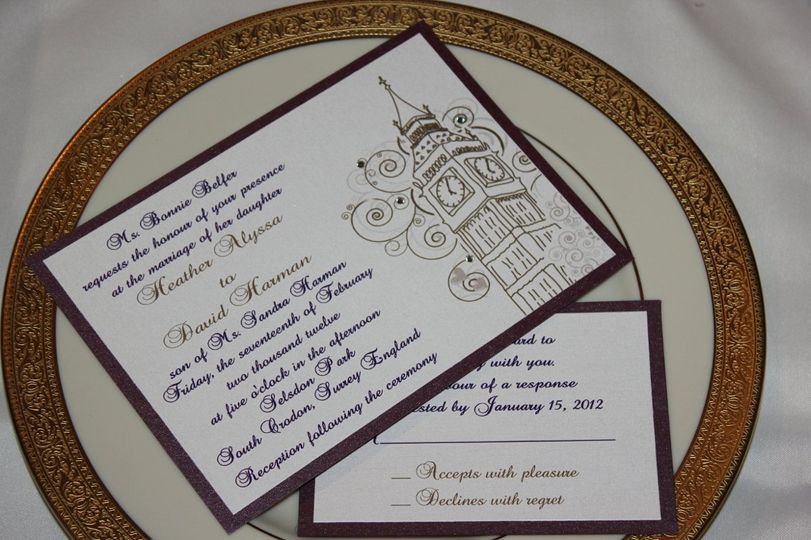 Ms. Bonnie Belfer
requests the honour of your presence
at the marriage of her daughter
Heather Alyssa
to
David Harman
son of Ms. Sandra Harman
Friday, the seventeenth of February
two thousand twelve
at five o'clock in the afternoon
Selsdon Park
South Crodon, Surrey England
Reception following the ceremony
to
with you.
of a response
by January 15, 2012
__ Accepts with pleasure
__ Declines with regret